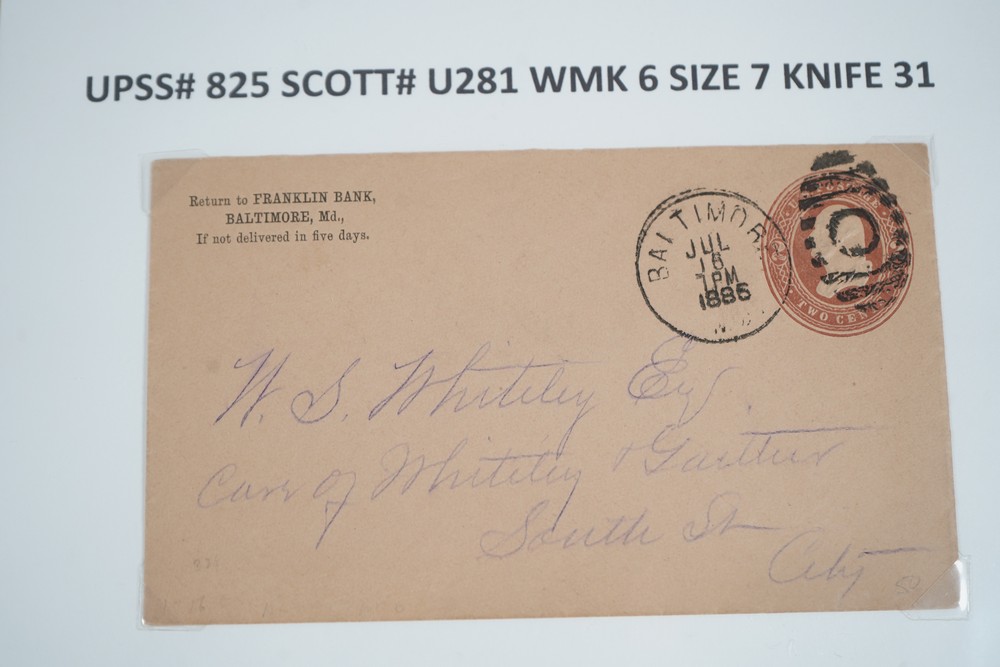 UPSS# 825 SCOTT# U281 WMK 6 SIZE 7 KNIFE 31
Return to FRANKLIN BANK,
BALTIMORE, Md.,
If not delivered in five days.
BALTIMORE
JUL
16
1PM
1886
TWO CENTS
W. S. Whiteley Esq.
Care of Whiteley & Gaither
South St
City